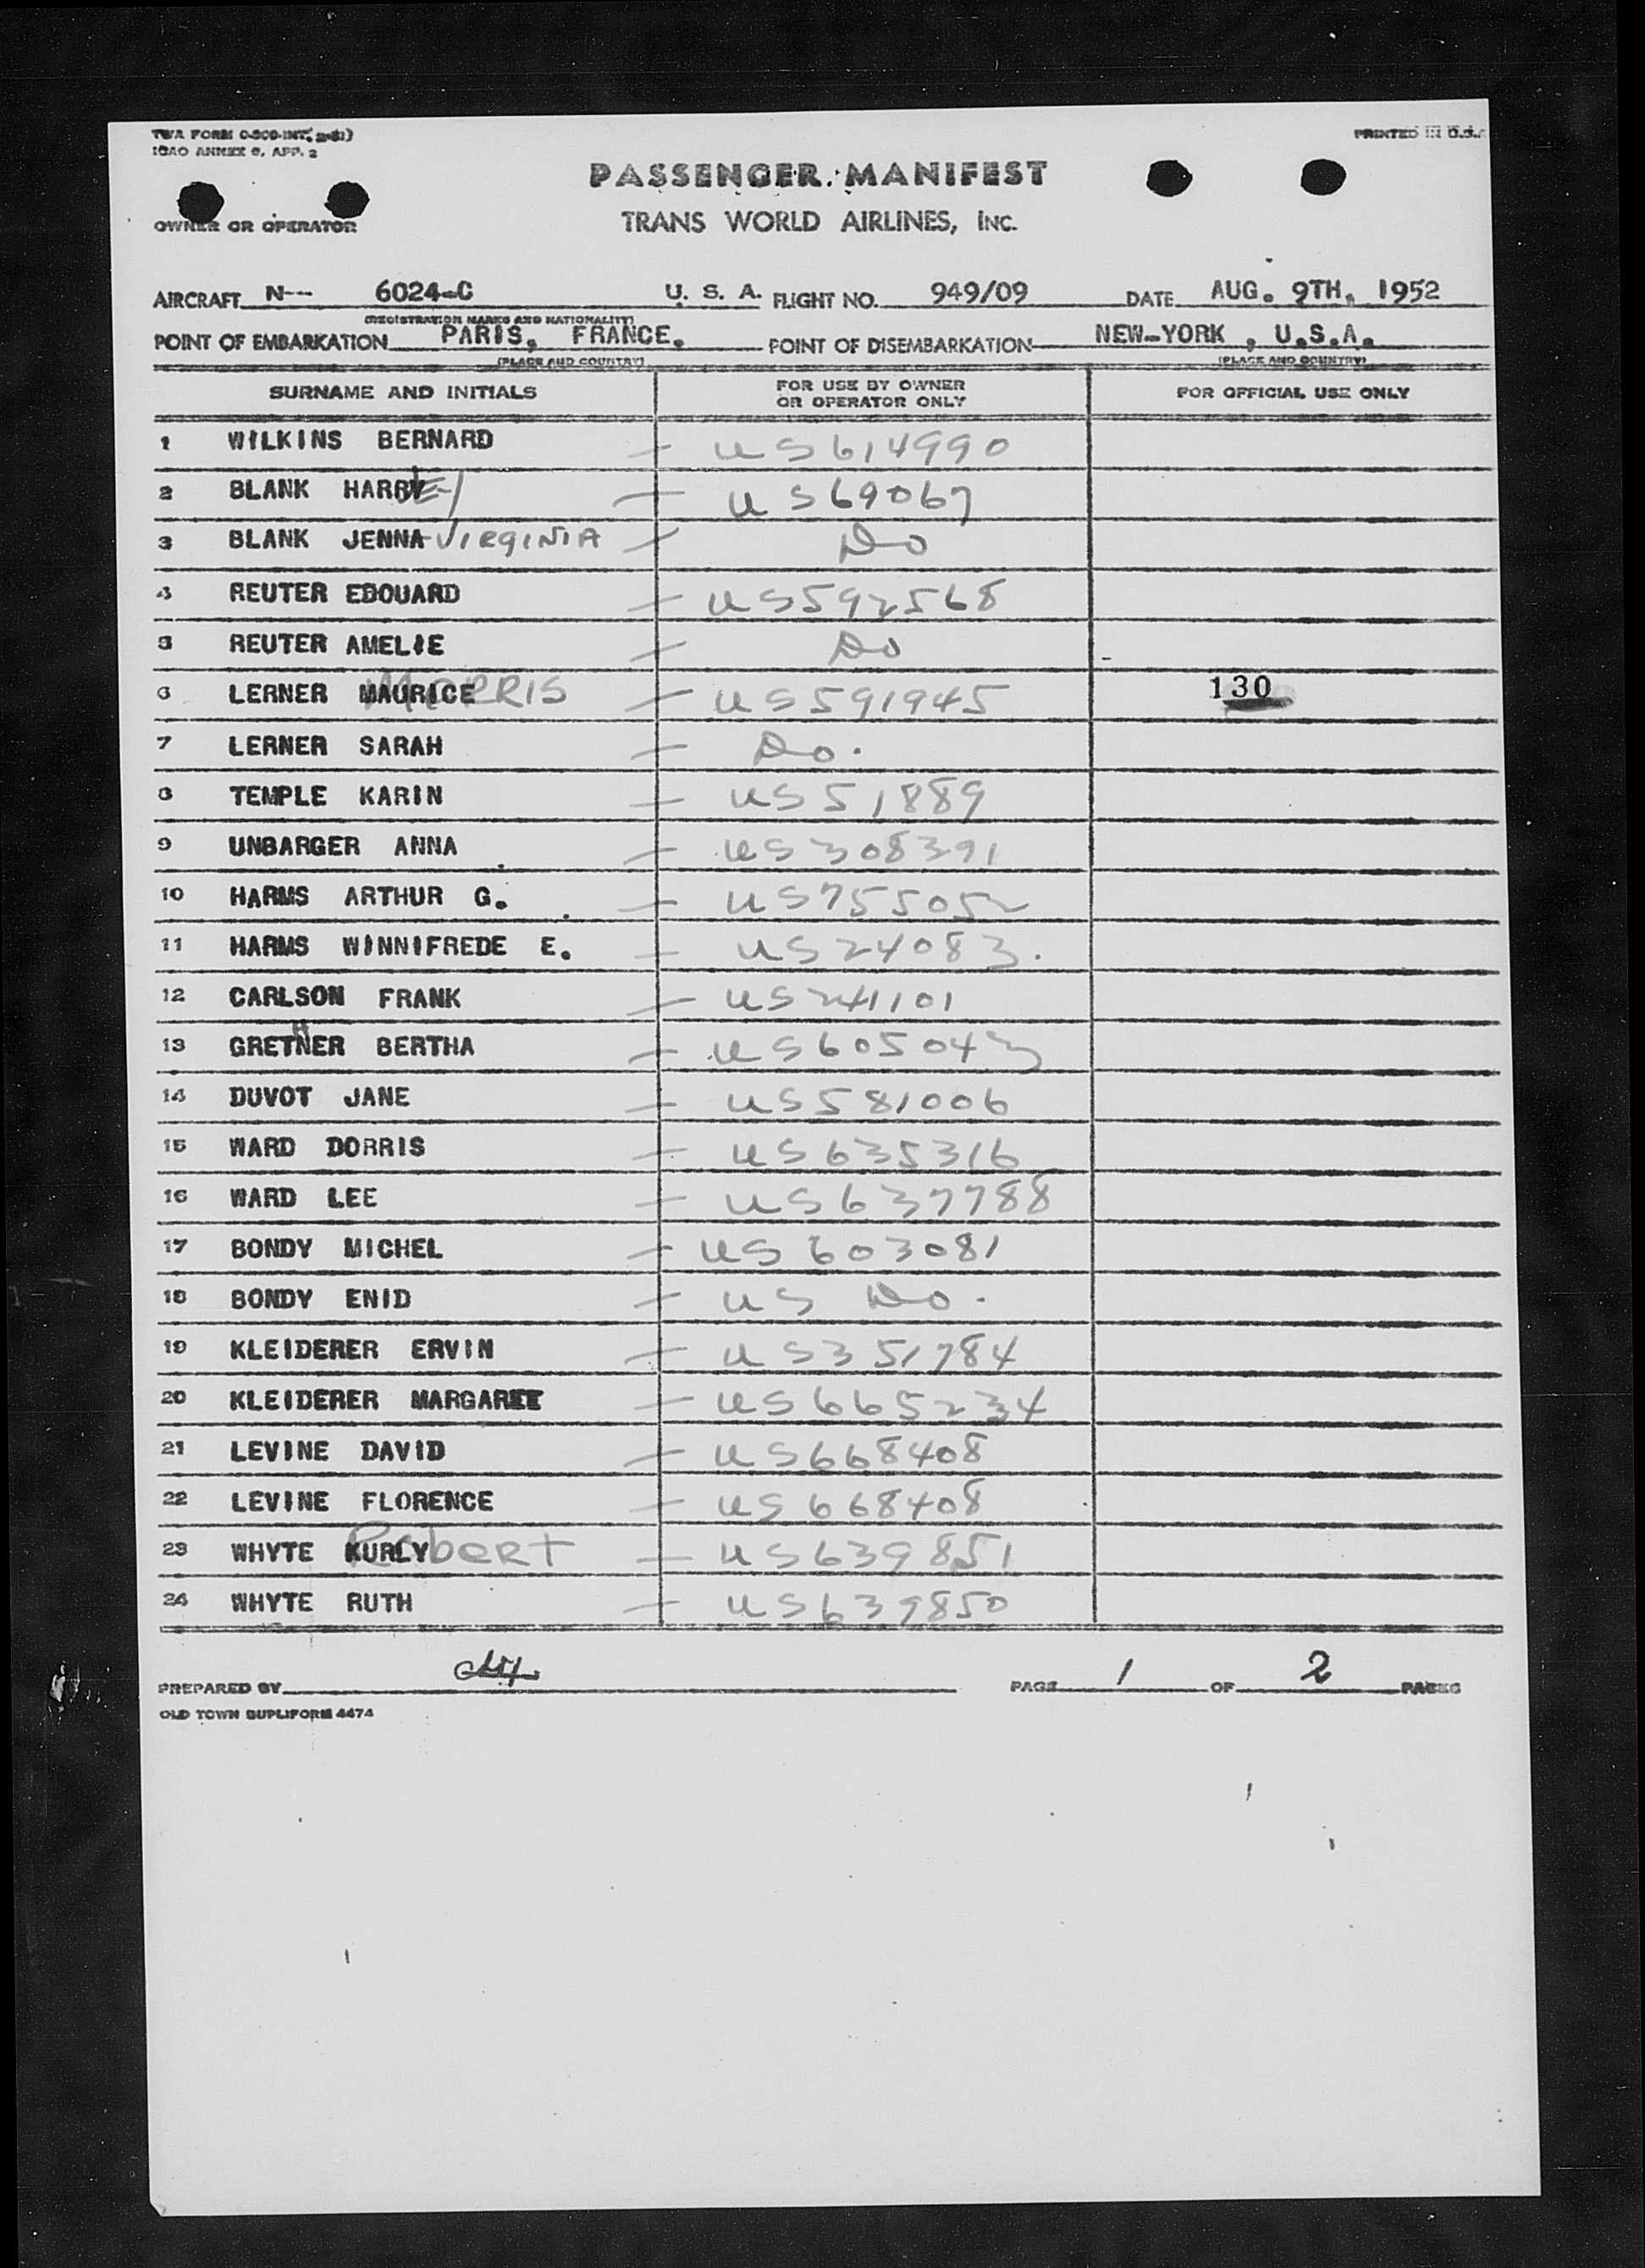 TWA FORM O-300-INT. 2-51)
ICAO ANNEX 9, APP. 2
PRINTED IN U.S.A.
PASSENGER MANIFEST
OWNER OR OPERATOR
TRANS WORLD AIRLINES, INC.
AIRCRAFT N--- 6024-C U. S. A. FLIGHT NO. 949/09 DATE AUG. 9TH. 1952
(REGISTRATION MARKS AND NATIONALITY)
POINT OF EMBARKATION PARIS, FRANCE. POINT OF DISEMBARKATION NEW-YORK , U.S.A.
(PLACE AND COUNTRY) (PLACE AND COUNTRY)
SURNAME AND INITIALS FOR USE BY OWNER OR OPERATOR ONLY FOR OFFICIAL USE ONLY
1 WILKINS BERNARD - US 614990
2 BLANK HARRY - US 69067
3 BLANK JENNA-VIRGINIA - Do
4 REUTER EDOUARD - US 592568
5 REUTER AMELIE - Do
6 LERNER MAURICE MORRIS - US 591945 130
7 LERNER SARAH - Do.
8 TEMPLE KARIN - US 51889
9 UNBARGER ANNA - US 308391
10 HARMS ARTHUR G. - US 755052
11 HARMS WINNIFREDE E. - US 24083.
12 CARLSON FRANK - US 241101
13 GRETHNER BERTHA - US 605043
14 DUVOT JANE - US 581006
15 WARD DORRIS - US 635316
16 WARD LEE - US 637788
17 BONDY MICHEL - US 603081
18 BONDY ENID - US Do.
19 KLEIDERER ERVIN - US 351784
20 KLEIDERER MARGARET - US 665234
21 LEVINE DAVID - US 668408
22 LEVINE FLORENCE - US 668408
23 WHYTE KURLY Robert - US 639851
24 WHYTE RUTH - US 639850
PREPARED BY PAGE 1 OF 2 PAGES
OLD TOWN DUPLIFORM 4474